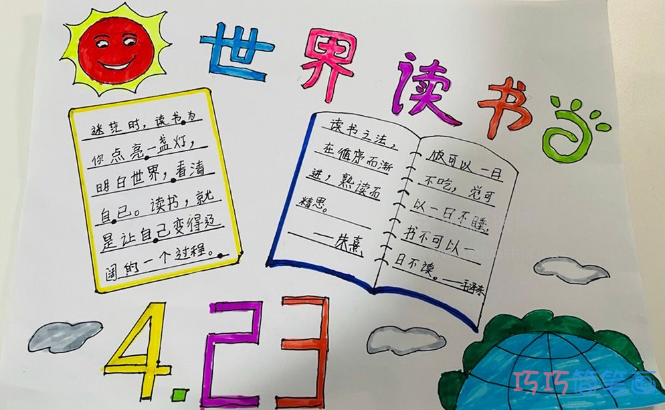 世界读书日
迷茫时，读书为
你点亮一盏灯，
明白世界，看清
自己。读书，就
是让自己变得辽
阔的一个过程。
读书之法，
在循序而渐
进，熟读而
精思。
——朱熹
饭可以一日
不吃，觉可
以一日不睡，
书不可以一
日不读。——毛泽东
4.23
巧巧简笔画